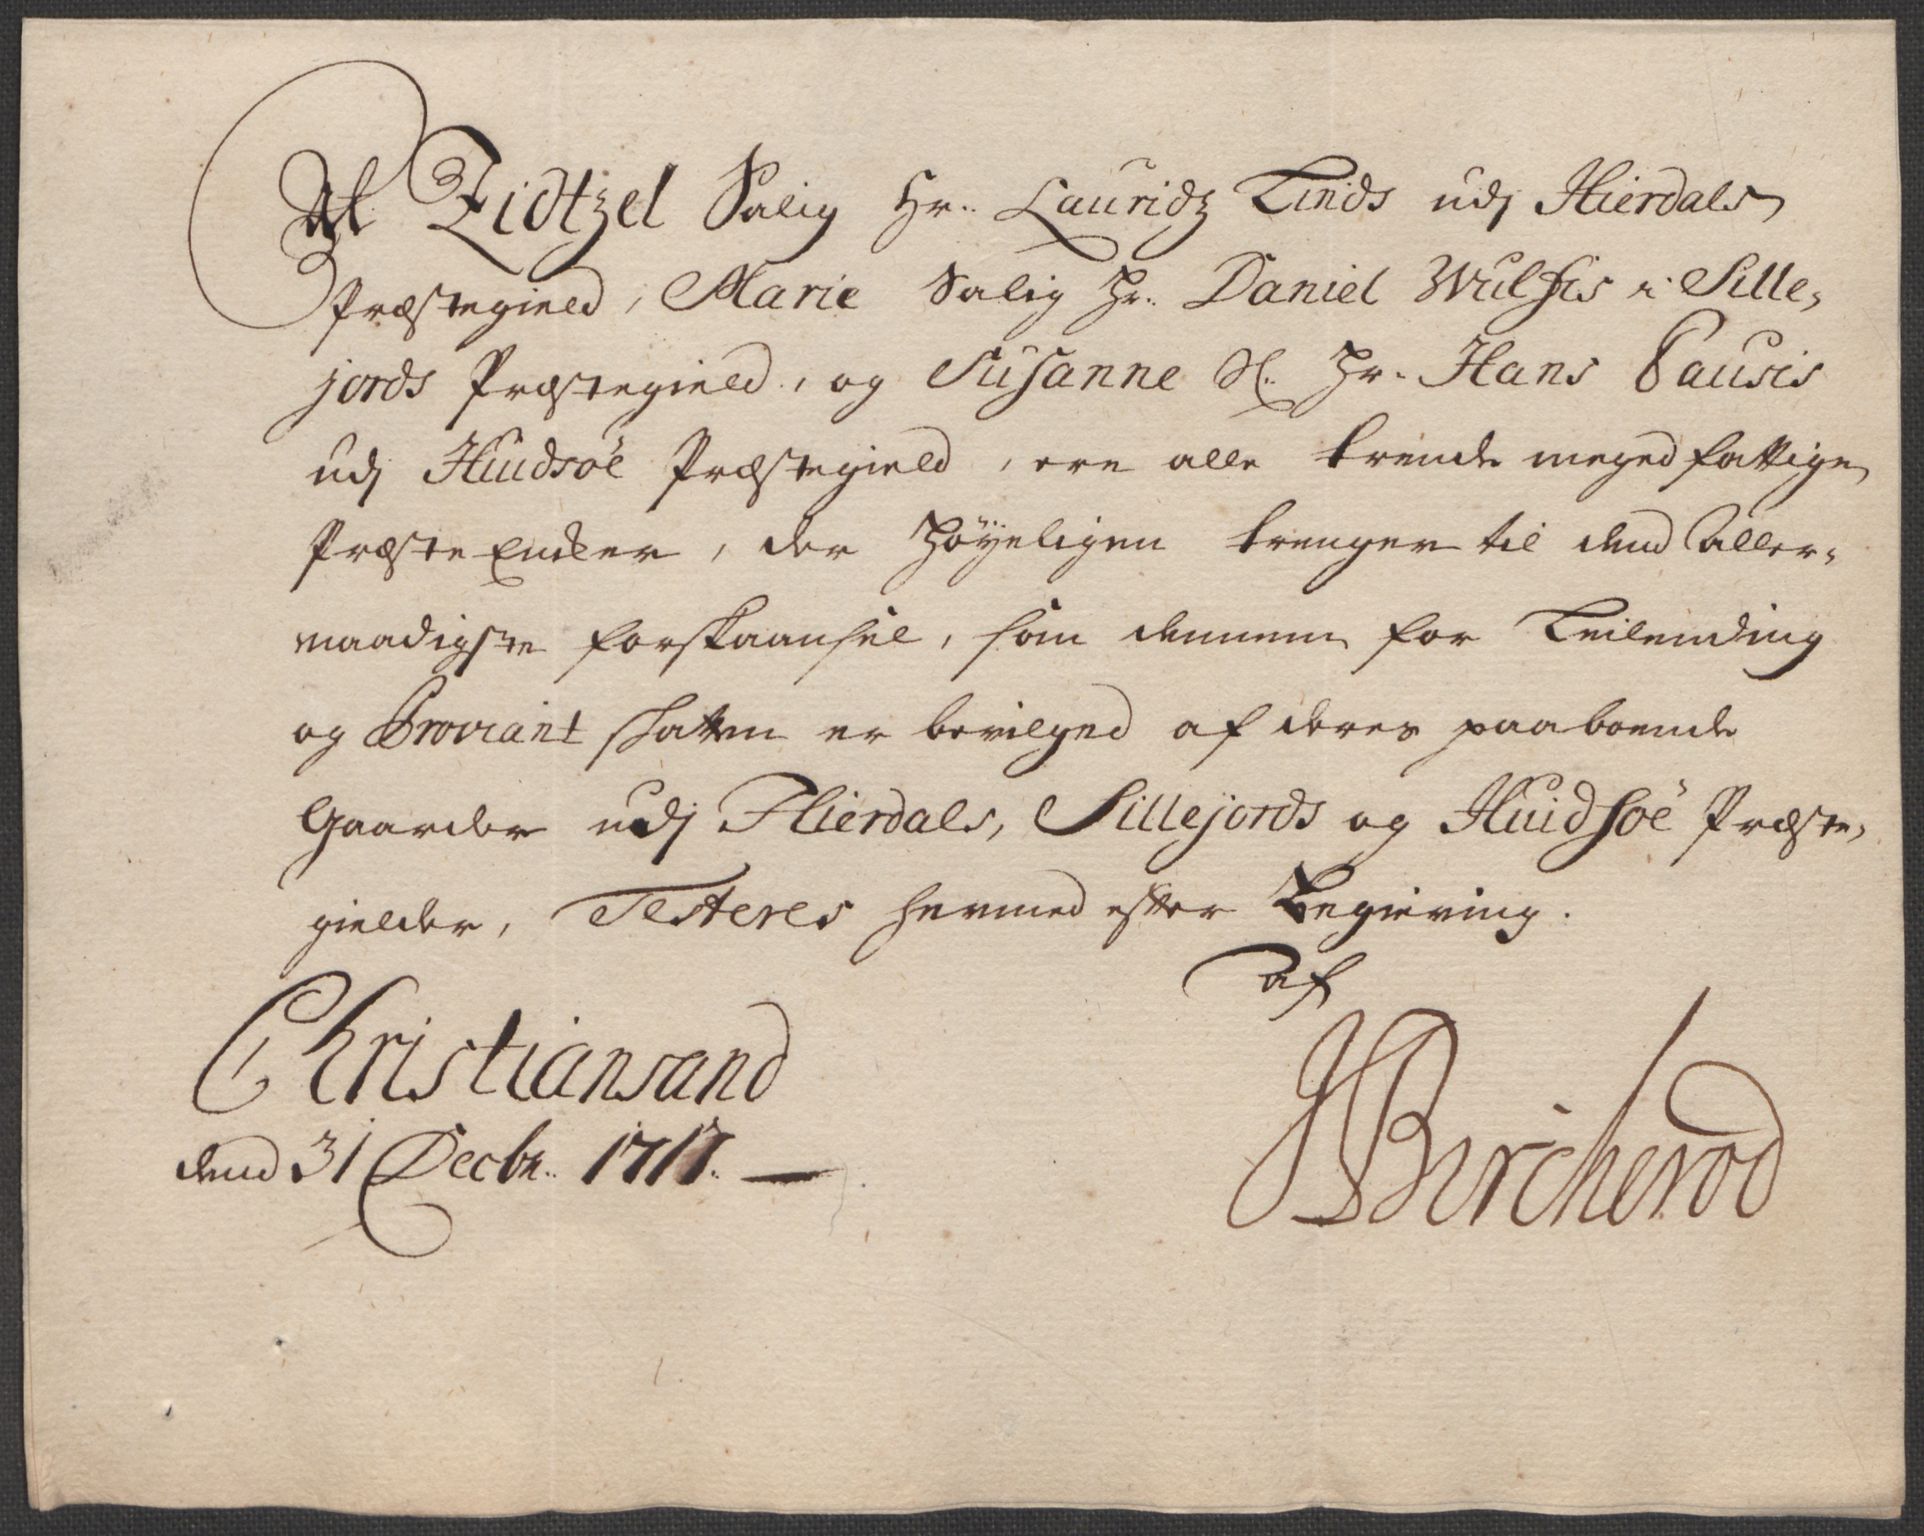 At Zidtzel Salig Hr. Lauridz Linds udj Hierdals
Præstegield, Marie Salig Hr. Daniel Wulffis i Sille-
jords Præstegield, og Susanne Sl. Hr. Hans Pausis
udj Huidsöe Præstegield, ere alle trende meged fattige
Præste Encker, der höyeligen trenger til dend Aller-
naadigste forskaansel, som dennem for Leilending
og Proviant skatten er bevilged af deres paaboende
Gaarder udj Hierdals, Sillejords og Huidsöe Præste-
gielder, Testeres hermed efter Begiering.
af
Christiansand
dend 31 Decbr. 1717.
JBircherod